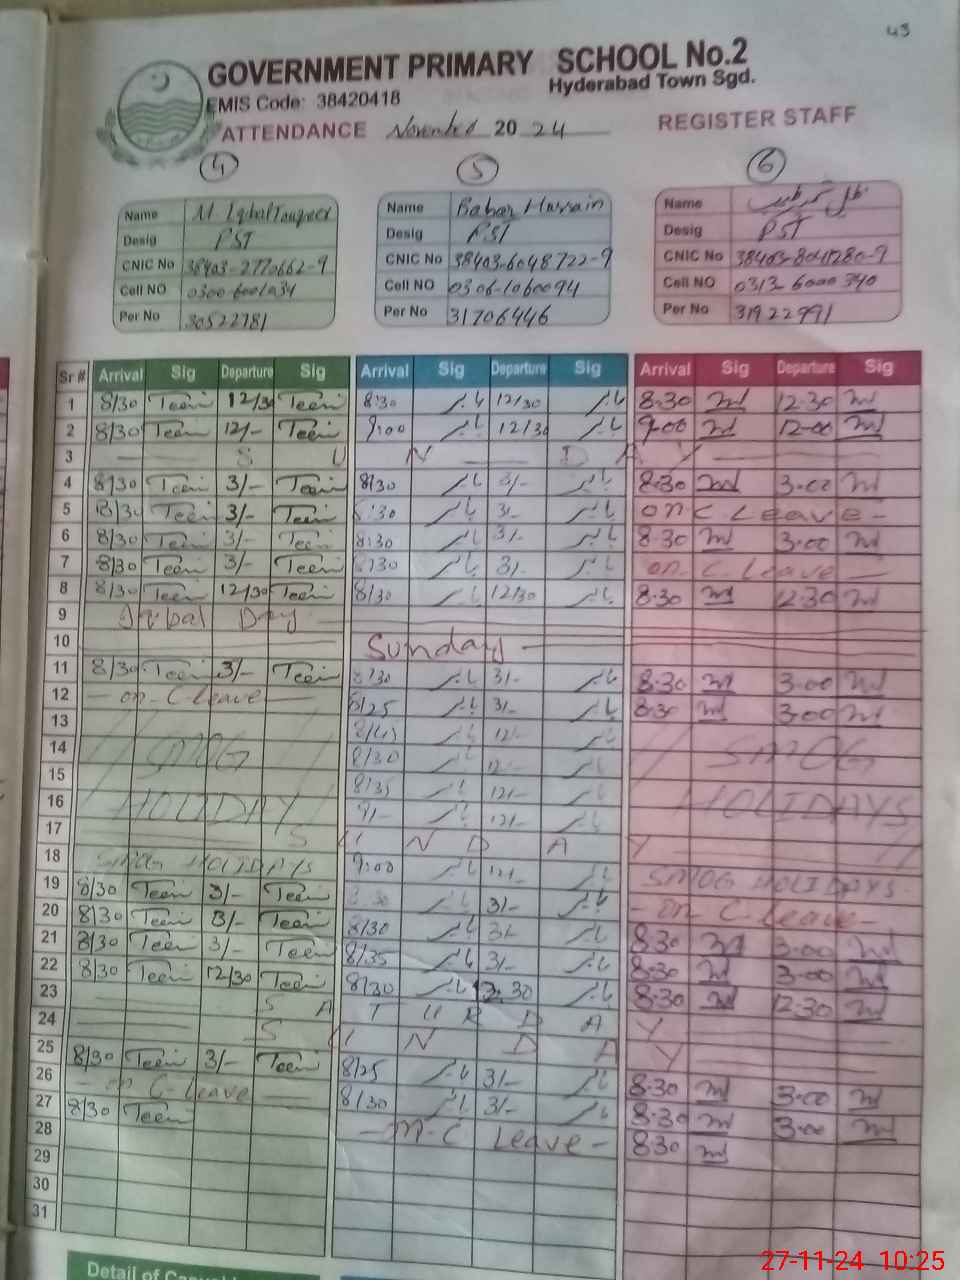 43
GOVERNMENT PRIMARY SCHOOL No.2
Hyderabad Town Sgd.
EMIS Code: 38420418
ATTENDANCE November 2024 REGISTER STAFF
4 5 6
Name M Iqbal Tauqeer Name Babar Hussain Name
Desig PST Desig PST Desig PST
CNIC No 38403-2770662-9 CNIC No 38403-6048722-9 CNIC No
Cell NO 0300-6001034 Cell NO 0306-1060094 Cell NO 0313-6000340
Per No 30522781 Per No 31706446 Per No 31922991
Sr # Arrival Sig Departure Sig Arrival Sig Departure Sig Arrival Sig Departure Sig
1 8/30 Teen 12/30 Teen 8:30 بابر 12/30 بابر 8.30 12.30
2 8/30 Teen 12/- Teen 9:00 بابر 12/30 بابر 9.00 12.00
3 S U N D A Y
4 8/30 Teen 3/- Teen 8/30 بابر 3/- بابر 8.30 3.00
5 8/30 Teen 3/- Teen 8:30 بابر 3/- بابر on C Leave -
6 8/30 Teen 3/- Teen 8:30 بابر 3/- بابر 8.30 3.00
7 8/30 Teen 3/- Teen 8/30 بابر 3/- بابر on C. Leave
8 8/30 Teen 12/30 Teen 8/30 بابر 12/30 بابر 8.30 12.30
9 Iqbal Day
10 Sunday
11 8/30 Teen 3/- Teen 8/30 بابر 3/- بابر 8.30 3.00
12 - on C leave - 8/25 بابر 3/- بابر 8.30 3.00
13 8/45 بابر 12/- بابر
14 SMOG 8/30 بابر 12/- بابر SMOG
15 8/35 بابر 12/- بابر
16 HOLIDAY 9/- بابر 12/- بابر HOLIDAYS
17 S U N D A Y
18 SMOG HOLIDAYS 9:00 بابر 12/- بابر SMOG HOLIDAYS
19 8/30 Teen 3/- Teen 8:30 بابر 3/- بابر - on C Leave -
20 8/30 Teen 3/- Teen 8/30 بابر 3/- بابر 8.30 3.00
21 8/30 Teen 3/- Teen 8/35 بابر 3/- بابر 8.30 3.00
22 8/30 Teen 12/30 Teen 8/30 بابر 12.30 بابر 8.30 12.30
23 S A T U R D A Y
24 S U N D A Y
25 8/30 Teen 3/- Teen 8/25 بابر 3/- بابر 8.30 3.00
26 - on C-Leave - 8/30 بابر 3/- بابر 8.30 3.00
27 8/30 Teen - M-C Leave - 8.30
28
29
30
31
Detail of
27-11-24 10:25